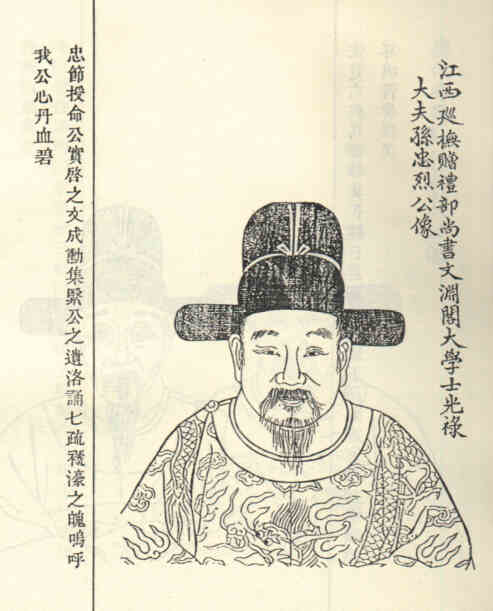 江西廵撫贈禮部尚書文淵閣大學士光祿
大夫孫忠烈公像
忠節授命公實啓之文成勳集繄公之遺洛誦七疏褫濠之魄嗚呼
我公心丹血碧